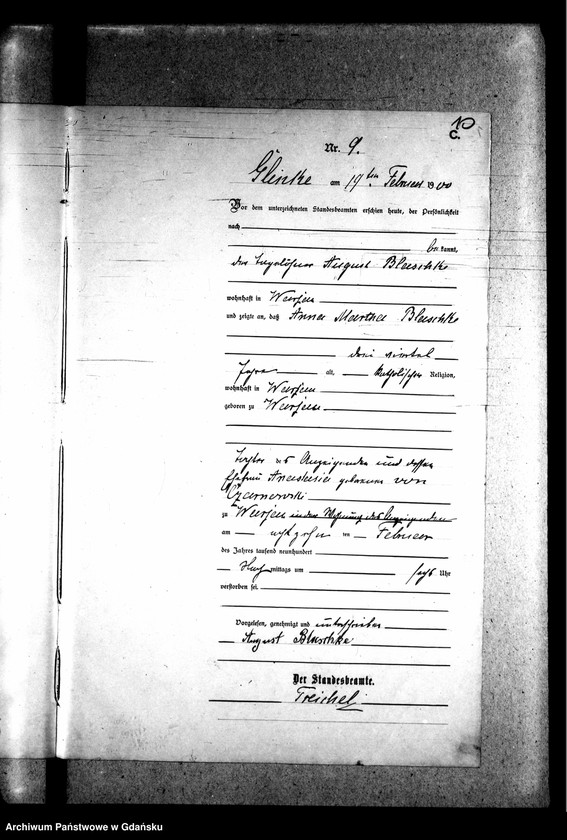 10
C.
Nr. 9.
Glinke am 19ten Februar 1900
Vor dem unterzeichneten Standesbeamten erschien heute, der Persönlichkeit
nach
be kannt,
der August Blaschke
wohnhaft in
und zeigte an, daß Anna Martha Blaschke
drei viertel
Jahre alt, katholischer Religion,
wohnhaft in
geboren zu
Tochter des Anzeigenden und dessen
Ehefrau Anastasia geborenen von
Czarnowski
zu in der Wohnung des Anzeigenden
am achtzehn ten Februar
des Jahres tausend neunhundert
Nach mittags um sechs Uhr
verstorben sei.
Vorgelesen, genehmigt und unterschrieben
August Blaschke
Der Standesbeamte.
Treichel
Archiwum Państwowe w Gdańsku